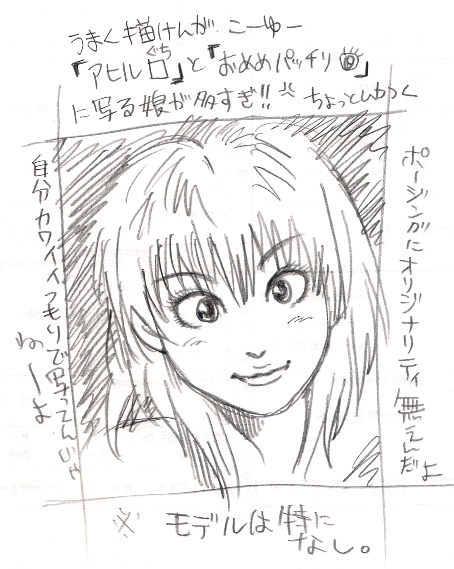 うまく描けんが、こーゆー
「アヒル口」と「おめめパッチリ」
ぐち
に写る娘が多すぎ!! ちょっとムカつく
ポージングにオリジナリティ無えんだよ
自分カワイイつもりで写ってんじゃ
ねーよ
※ モデルは特に
なし。